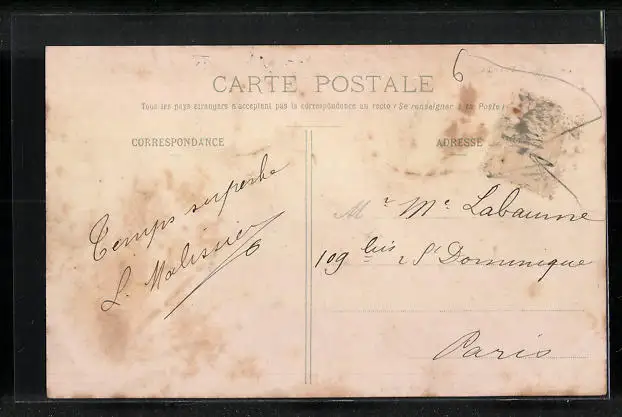 6
CARTE POSTALE
Tous les pays étrangers n'acceptent pas la correspondance au recto (Se renseigner à la Poste)
CORRESPONDANCE
ADRESSE
Temps superbe
L.
Mr Me Labaume
109 bis r St Dominique
Paris